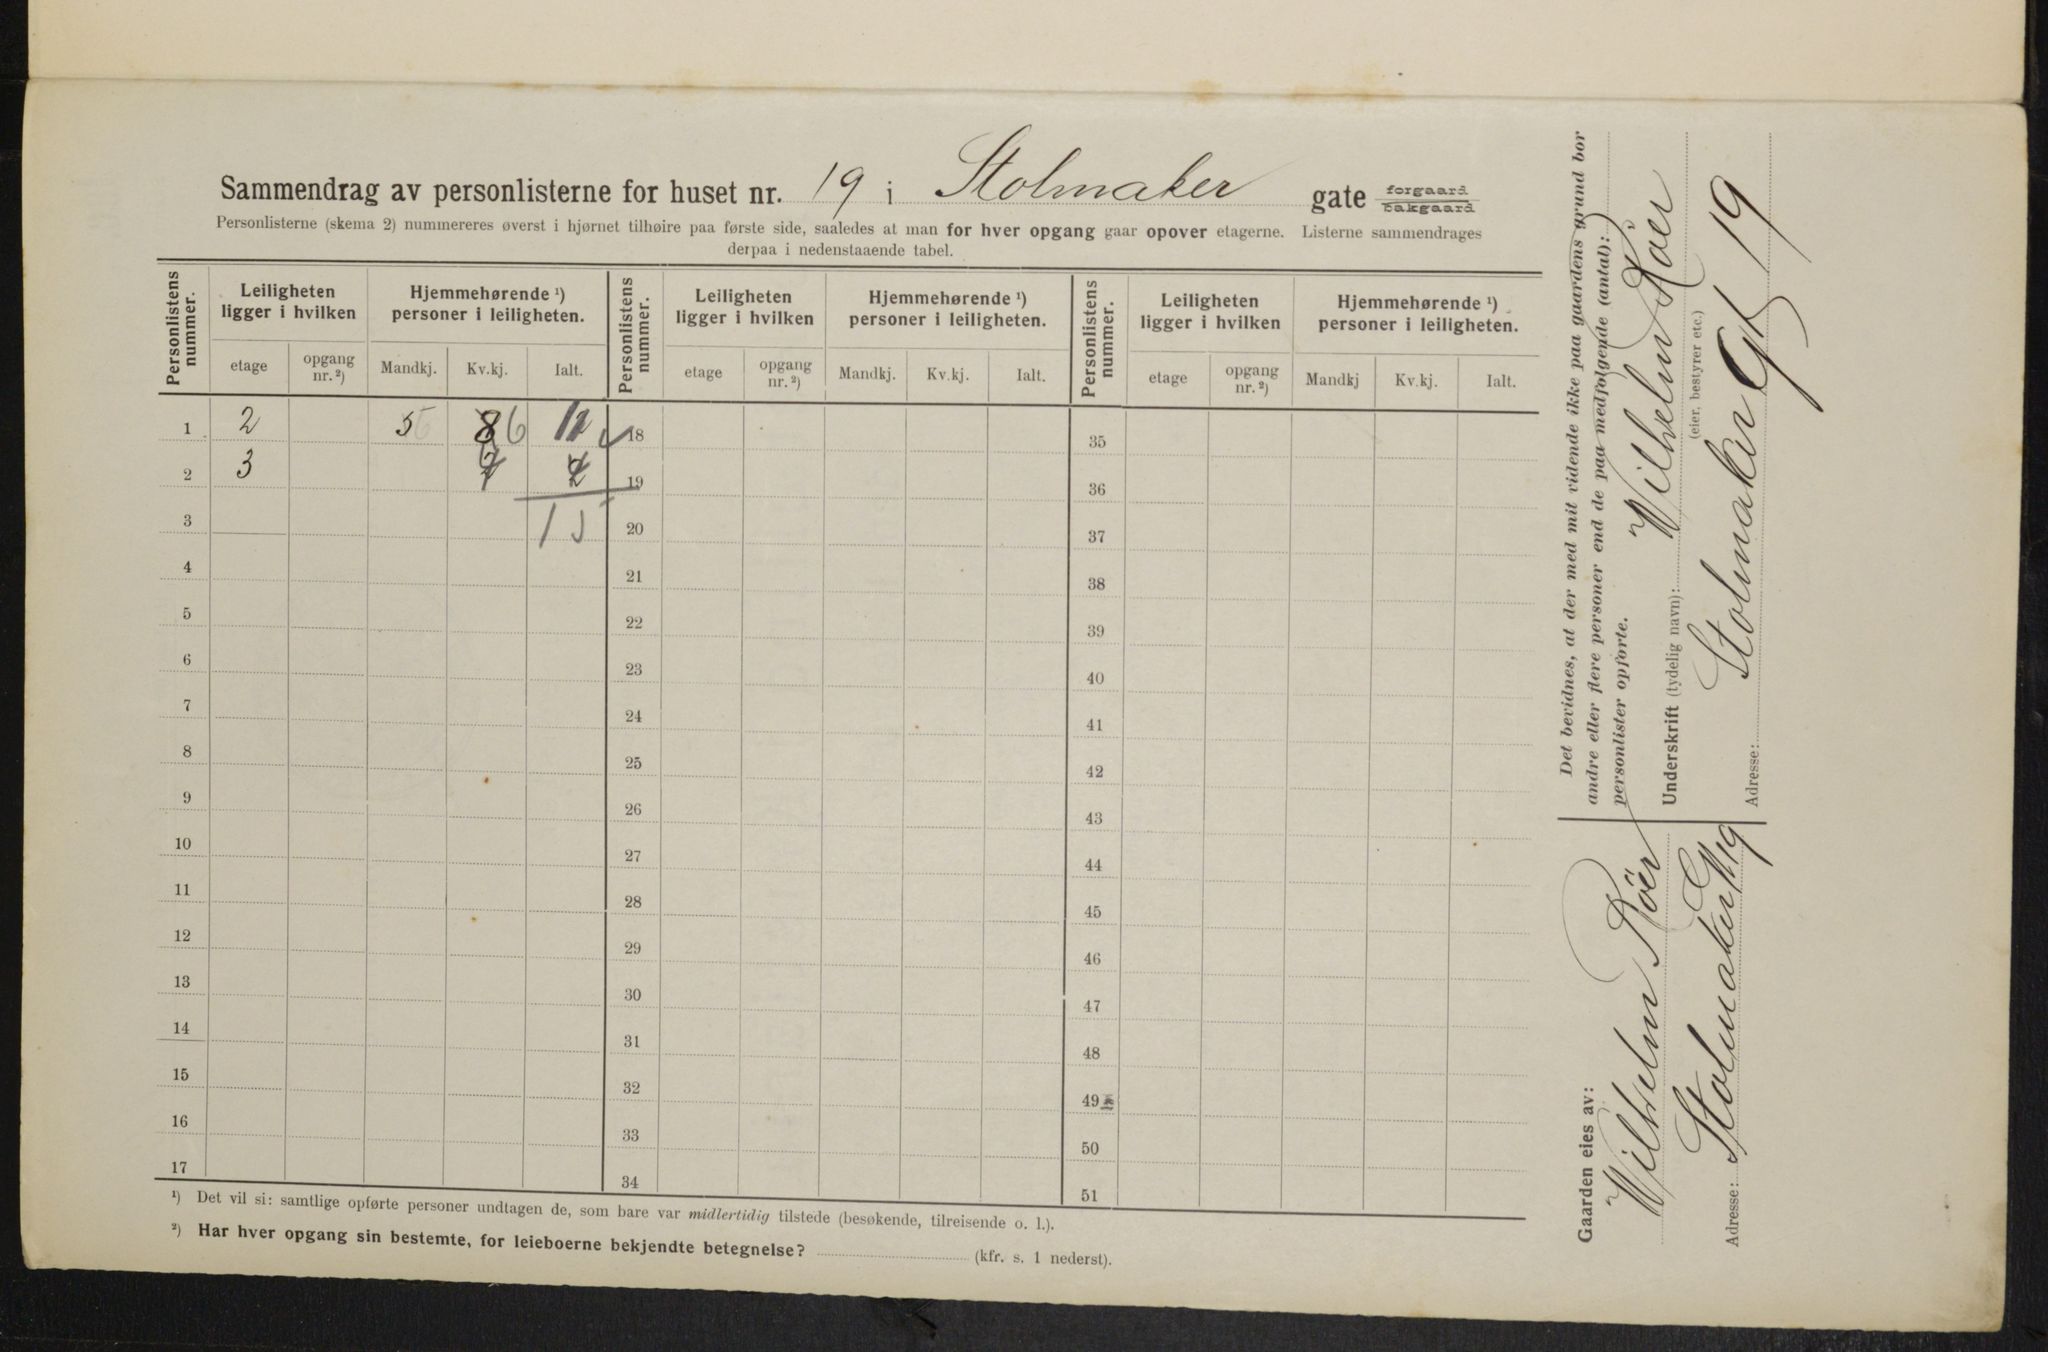 Sammendrag av personlisterne for huset nr. 19 i Stolmaker gate forgaard bakgaard
Personlisterne (skema 2) nummereres øverst i hjørnet tilhøire paa første side, saaledes at man for hver opgang gaar opover etagerne. Listerne sammendrages
derpaa i nedenstaaende tabel.
Personlistens nummer. Leiligheten ligger i hvilken Hjemmehørende ¹) personer i leiligheten. Personlistens nummer. Leiligheten ligger i hvilken Hjemmehørende ¹) personer i leiligheten. Personlistens nummer. Leiligheten ligger i hvilken Hjemmehørende ¹) personer i leiligheten.
etage opgang nr. ²) Mandkj. Kv.kj. Ialt. etage opgang nr. ²) Mandkj. Kv.kj. Ialt. etage opgang nr. ²) Mandkj Kv.kj. Ialt.
1 2 5 8 6 18 35
2 3 19 36
3 20 37
4 21 38
5 22 39
6 23 40
7 24 41
8 25 42
9 26 43
10 27 44
11 28 45
12 29 46
13 30 47
14 31 48
15 32 49
16 33 50
17 34 51
¹) Det vil si: samtlige opførte personer undtagen de, som bare var midlertidig tilstede (besøkende, tilreisende o. l.).
²) Har hver opgang sin bestemte, for leieboerne bekjendte betegnelse? (kfr. s. 1 nederst).
Det bevidnes, at der med mit vidende ikke paa gaardens grund bor
andre eller flere personer end de paa medfølgende (antal):
personlister opførte.
Underskrift (tydelig navn): Wilhelm Röer
(eier, bestyrer etc.)
Adresse: Stolmaker Gt 19
Gaarden eies av:
Wilhelm Röer
Adresse: Stolmaker Gt 19